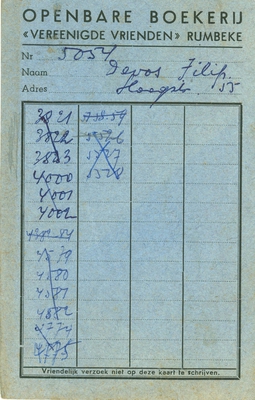 OPENBARE BOEKERIJ
«VEREENIGDE VRIENDEN» RUMBEKE
Nr 5054
Naam Devos Filip
Adres Hoogstr. 55
3821
3822 5526
3883 5527
4000 5528
4001
4002
4579
4580
4581
4882
4774
4775
Vriendelijk verzoek niet op deze kaart te schrijven.